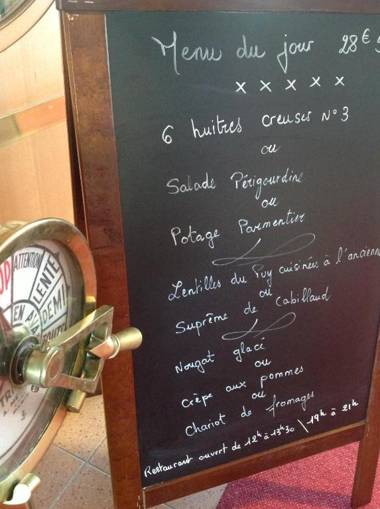 Menu du jour 28€5
x x x x x
6 huitres creuses N°3
ou
Salade Périgourdine
ou
Potage Parmentier
Lentilles du Puy cuisinées à l'ancienne
ou
Suprême de Cabillaud
Nougat glacé
ou
Crêpe aux pommes
ou
Chariot de fromages
Restaurant ouvert de 12h à 13h30 \ 19h à 21h
ATTENTION
LENTE
DEMI
EN